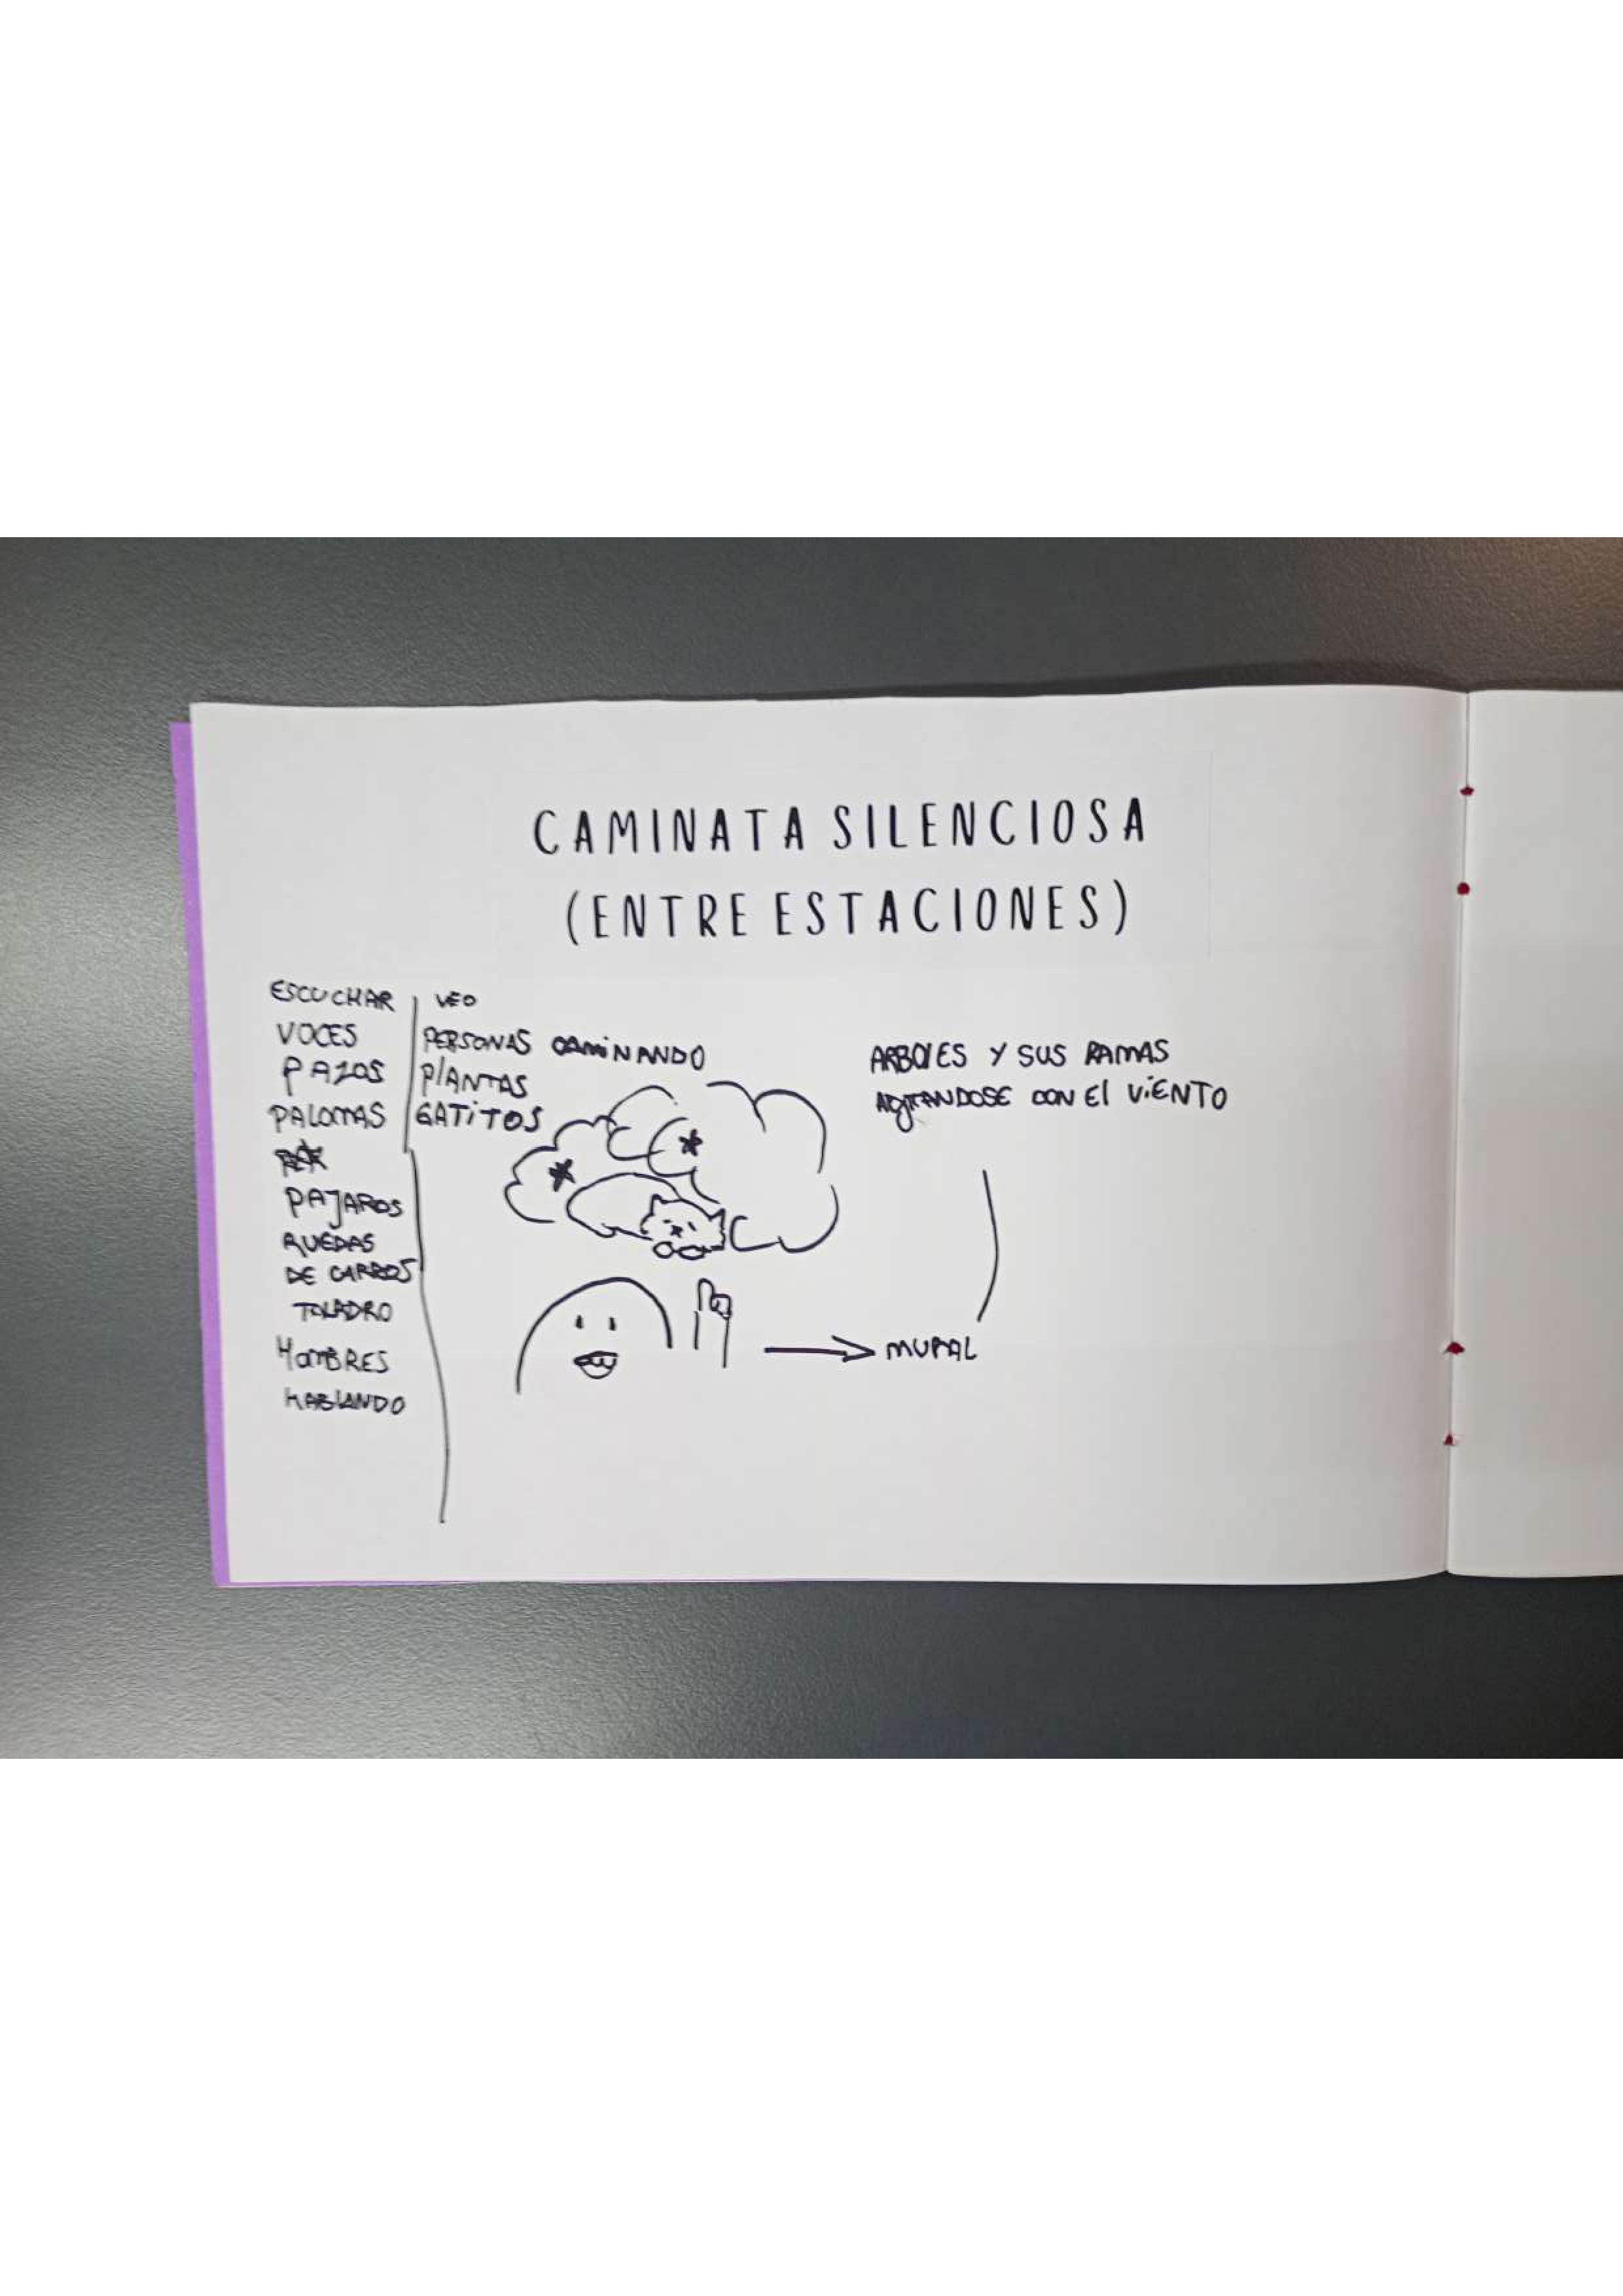 CAMINATA SILENCIOSA
(ENTRE ESTACIONES)
ESCUCHAR
VOCES
PAZOS
PALOMAS
PAJAROS
RUEDAS
DE CARROS
TALADRO
HOMBRES
HABLANDO
VEO
PERSONAS CAMINANDO
PLANTAS
GATITOS
ARBOLES Y SUS RAMAS
AGITANDOSE CON El ViENTO
MURAL